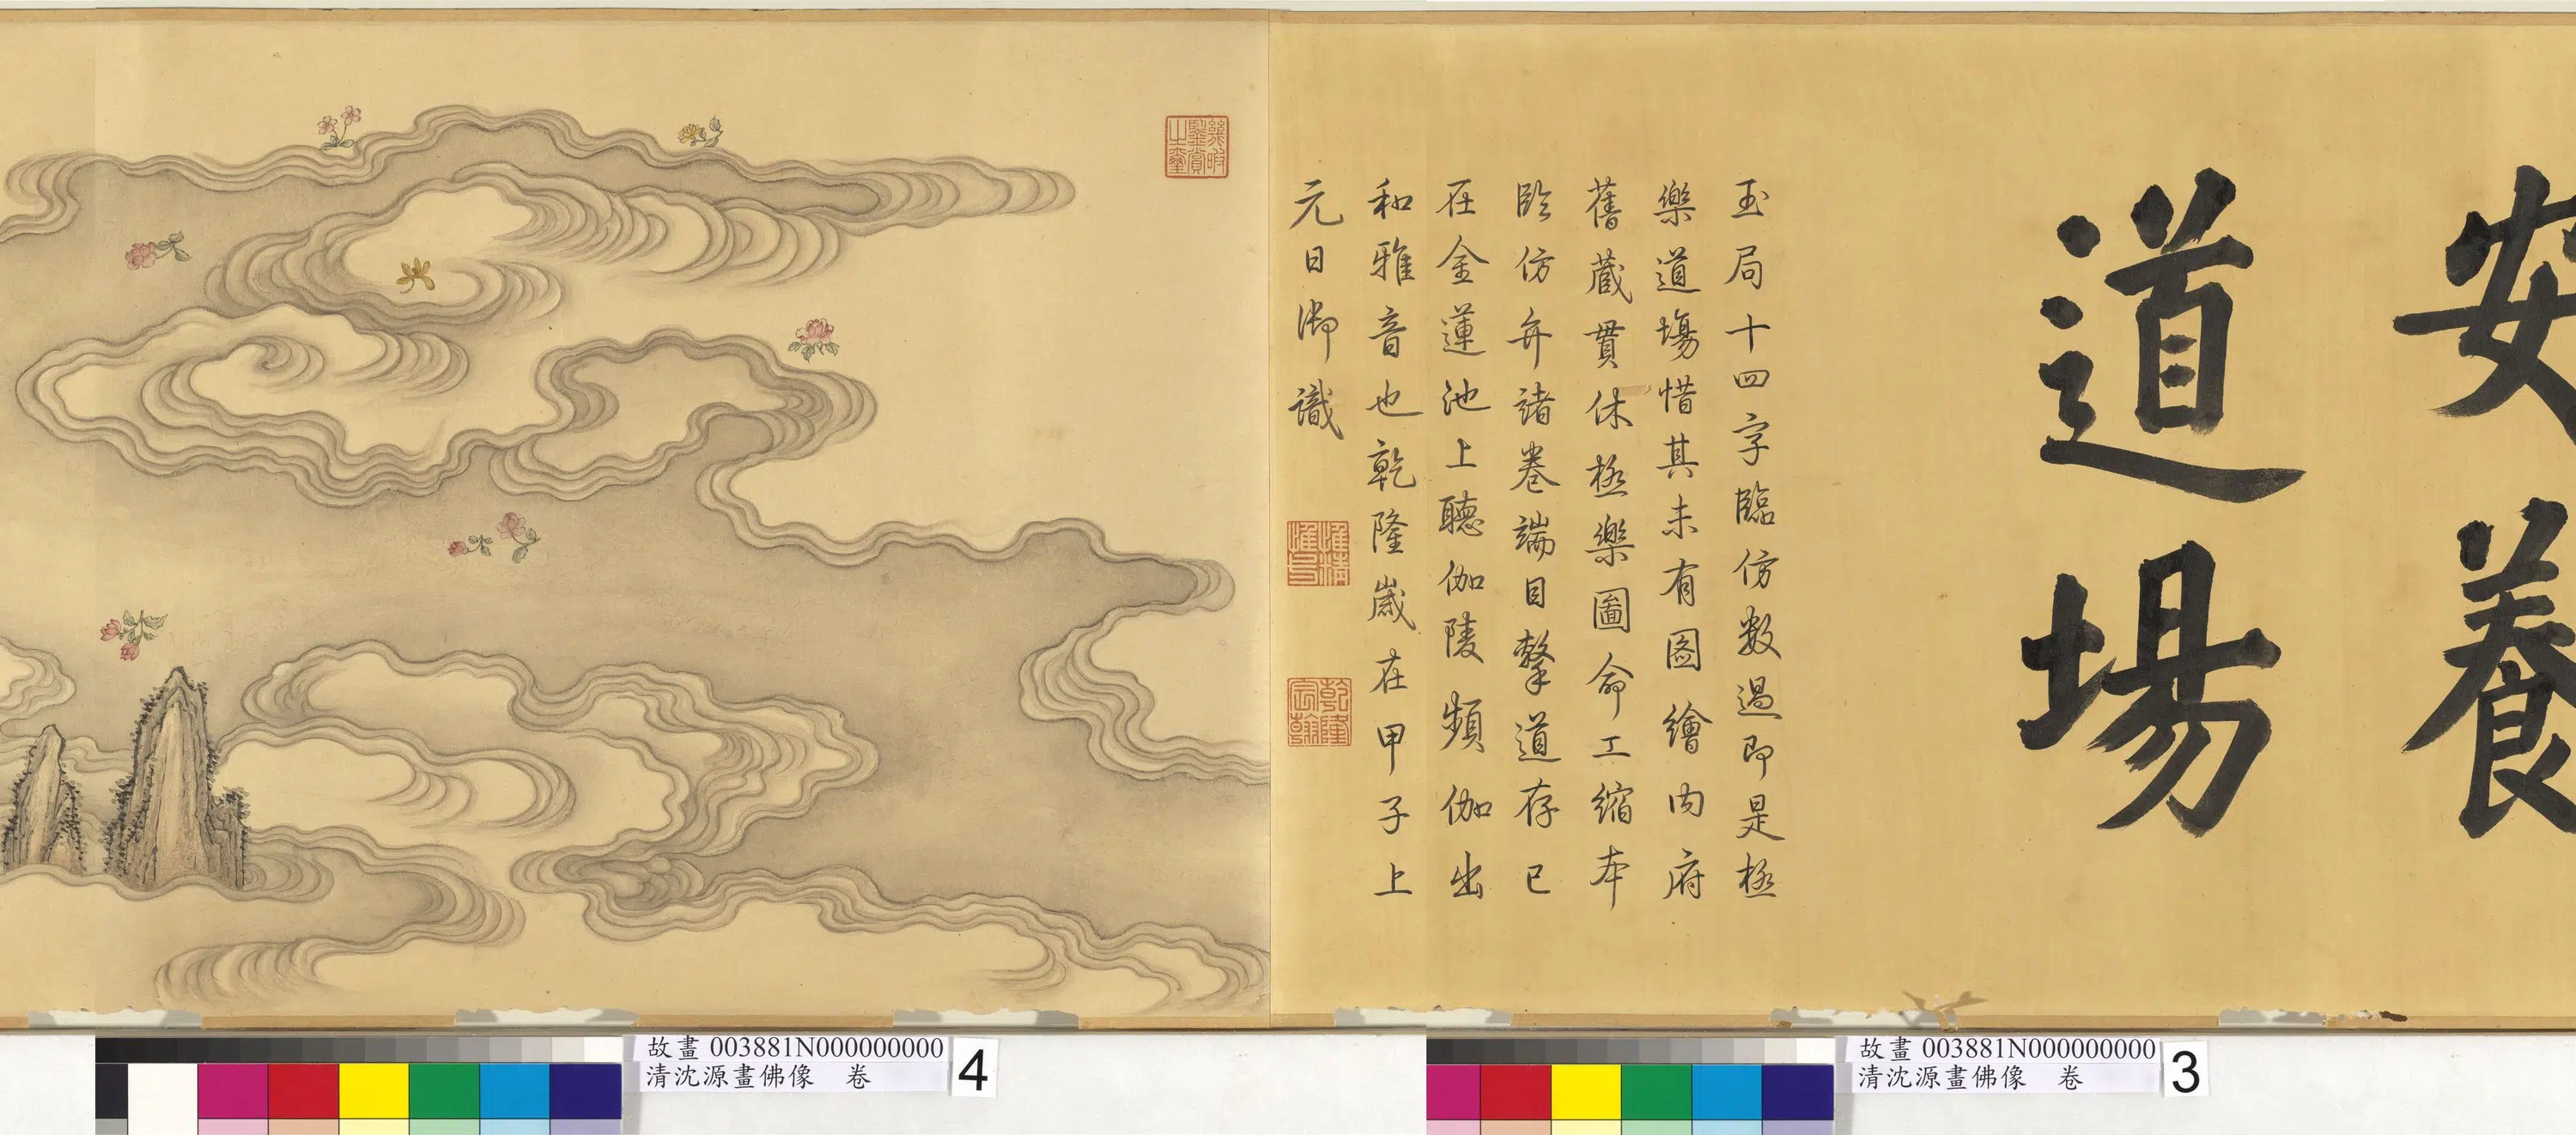 安養
道場
玉局十四字臨仿數過即是極
樂道場惜其未有圖繪内府
舊藏貫休極樂圖命工縮本
臨仿弁諸卷端目擊道存已
在金蓮池上聽伽陵頻伽出
和雅音也乾隆歲在甲子上
元日御識
惟精惟一
乾隆宸翰
幾暇鑒賞之璽
故畫 003881N000000000
清沈源畫佛像 卷
3
故畫 003881N000000000
清沈源畫佛像 卷
4